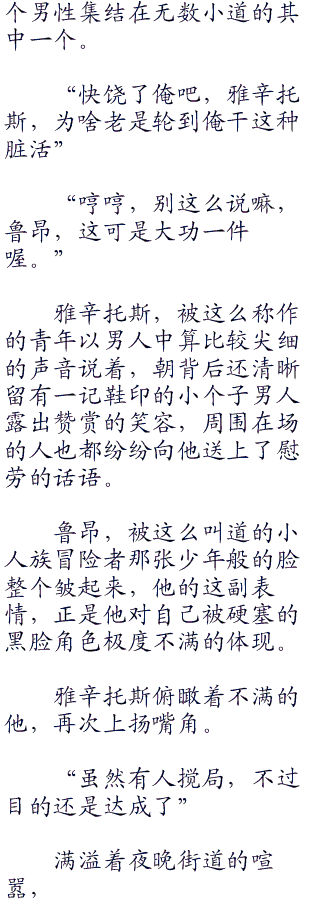 个男性集结在无数小道的其
中一个。
“快饶了俺吧，雅辛托
斯，为啥老是轮到俺干这种
脏活”
“哼哼，别这么说嘛，
鲁昂，这可是大功一件
喔。”
雅辛托斯，被这么称作
的青年以男人中算比较尖细
的声音说着，朝背后还清晰
留有一记鞋印的小个子男人
露出赞赏的笑容，周围在场
的人也都纷纷向他送上了慰
劳的话语。
鲁昂，被这么叫道的小
人族冒险者那张少年般的脸
整个皱起来，他的这副表
情，正是他对自己被硬塞的
黑脸角色极度不满的体现。
雅辛托斯俯瞰着不满的
他，再次上扬嘴角。
“虽然有人搅局，不过
目的还是达成了”
满溢着夜晚街道的喧
嚣，